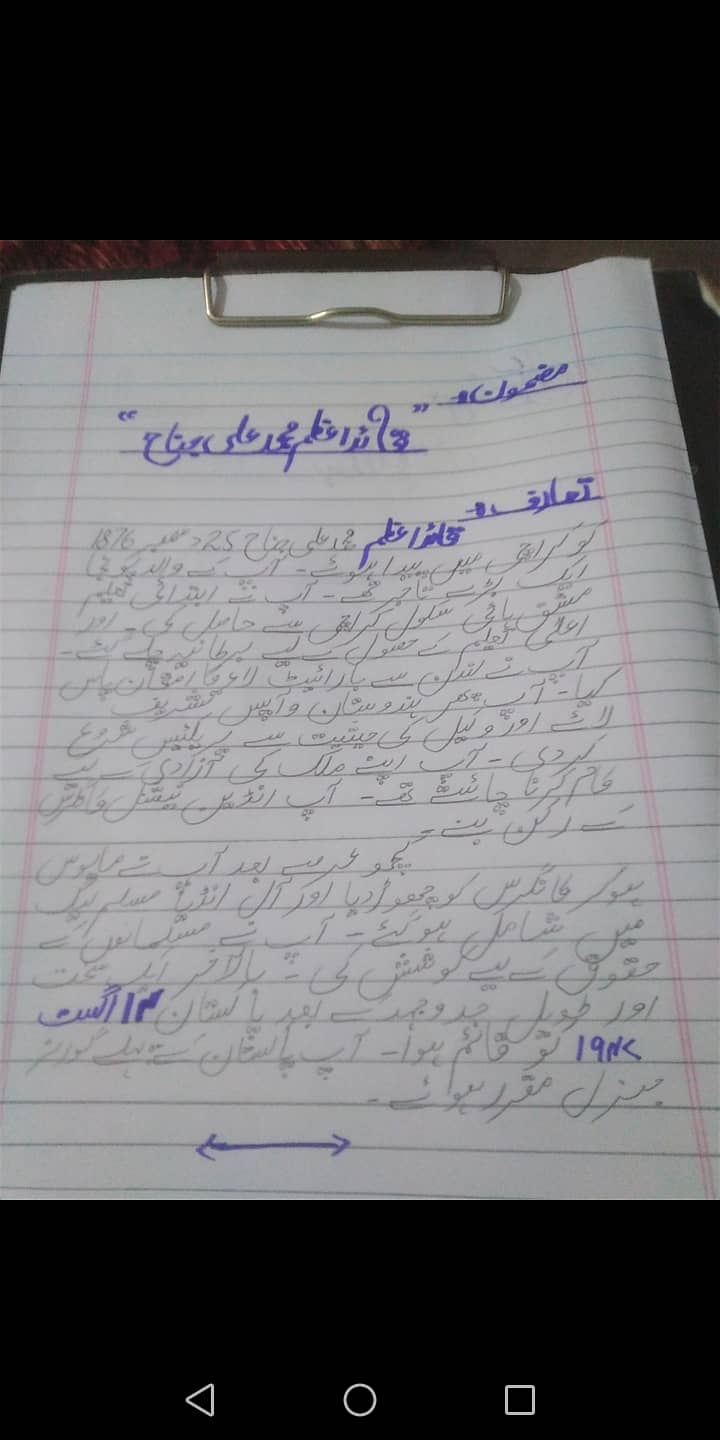 مضمون:-
"قائداعظم محمد علی جناح"
تعارف:-
قائداعظم محمد علی جناح 25 دسمبر 1876
کو کراچی میں پیدا ہوئے۔ آپ کے والد پونجا
ایک بڑے تاجر تھے۔ آپ نے ابتدائی تعلیم
مشن ہائی سکول کراچی سے حاصل کی۔ اور
اعلیٰ تعلیم کے حصول کے لیے برطانیہ چلے گئے۔
آپ نے لندن سے بارایٹ لاء کا امتحان پاس
کیا۔ آپ پھر ہندوستان واپس تشریف
لائے اور وکیل کی حیثیت سے پریکٹیس شروع
کردی۔ آپ اپنے ملک کی آزادی کے لیے
کام کرنا چاہتے تھے۔ آپ انڈین نیشنل کانگرس
کے رکن بنے۔
کچھ عرصے بعد آپ نے مایوس
ہوکر کانگرس کو چھوڑ دیا اور آل انڈیا مسلم لیگ
میں شامل ہوگئے۔ آپ نے مسلمانوں کے
حقوق کے لیے کوشش کی۔ بالآخر ایک سخت
اور طویل جدوجہد کے بعد پاکستان ۱۴ اگست
۱۹۴۷ کو قائم ہوا۔ آپ پاکستان کے پہلے گورنر
جنرل مقرر ہوئے۔